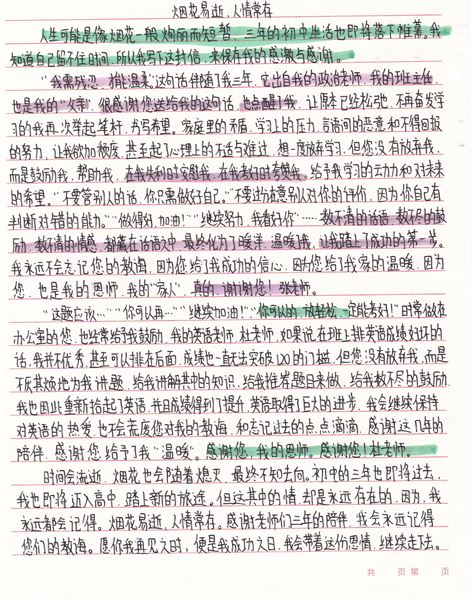 烟花易逝,人情常存
人生可能是像烟花一般绚丽而短暂,三年的初中生活也即将落下帷幕。我
知道自己留不住时间,所以我写下这封信,来保存我的感激与感谢。
"我需残忍,搏能温柔"这句话伴随了我三年,它出自我的政治老师,我的班主任,
也是我的"父亲",很感谢您送给我的这句话,也点醒了我,让原本已经松弛,不再奋发学
习的我再一次举起笔杆,书写希望。家庭里的矛盾,学习上的压力,言语间的恶意和不得回报
的努力,让我欲加颓废,甚至起了心理上的不适与难过,想一度放弃学习,但您没有放弃我,
而是鼓励我,帮助我,在我失利时安慰我,在我考好时夸赞我,给予我学习的动力和对未来
的希望。"不要管别人的话,你只需做好自己。""不要过分在意别人对你的评价,因为你自己有
判断对错的能力。""做得好,加油!""继续努力,我看好你"……数不清的话语,数不尽的鼓
励,数不清的情感,都藏在话语之中,最终化为了暖洋,温暖了我,让我踏上了成功的第一步。
我永远不会忘记您的教诲,因为您给了我成功的信心,因为您给了我家的温暖,因为
您,也是我的恩师,我的"家人",真的,谢谢您!张老师。
"这题应该……""你可以再……""继续加油!""你可以的,放轻松,一定能考好!"时常做在
办公室的您,也经常给予我鼓励,我的英语老师,杜老师,如果说在班上排英语成绩好坏的
话,我并不优秀,甚至可以排在后面,成绩也一直无法突破120的门槛,但您没有放弃我,而是
不厌其烦地为我讲题,给我讲解其中的知识,给我推荐题目来做,给我数不尽的鼓励,
我也因此重新拾起了英语,并且成绩得到了提升,英语取得了巨大的进步,我会继续保持
对英语的热爱,也不会荒废您对我的教诲,和忘记过去的点点滴滴,感谢这几年的
陪伴,感谢您给予了我"温暖"。感谢您,我的恩师,感谢您!杜老师。
时间会流逝,烟花也会随着熄灭,最终不知去向。初中的三年也即将过去,
我也即将迈入高中,踏上新的旅途。但这其中的情,却是永远存在的,因为,我
永远都会记得。烟花易逝,人情常存。感谢老师们三年的陪伴,我会永远记得
您们的教诲。愿你我再见之时,便是我成功之日,我会带着这份思情,继续走下去。
共 页 第 页